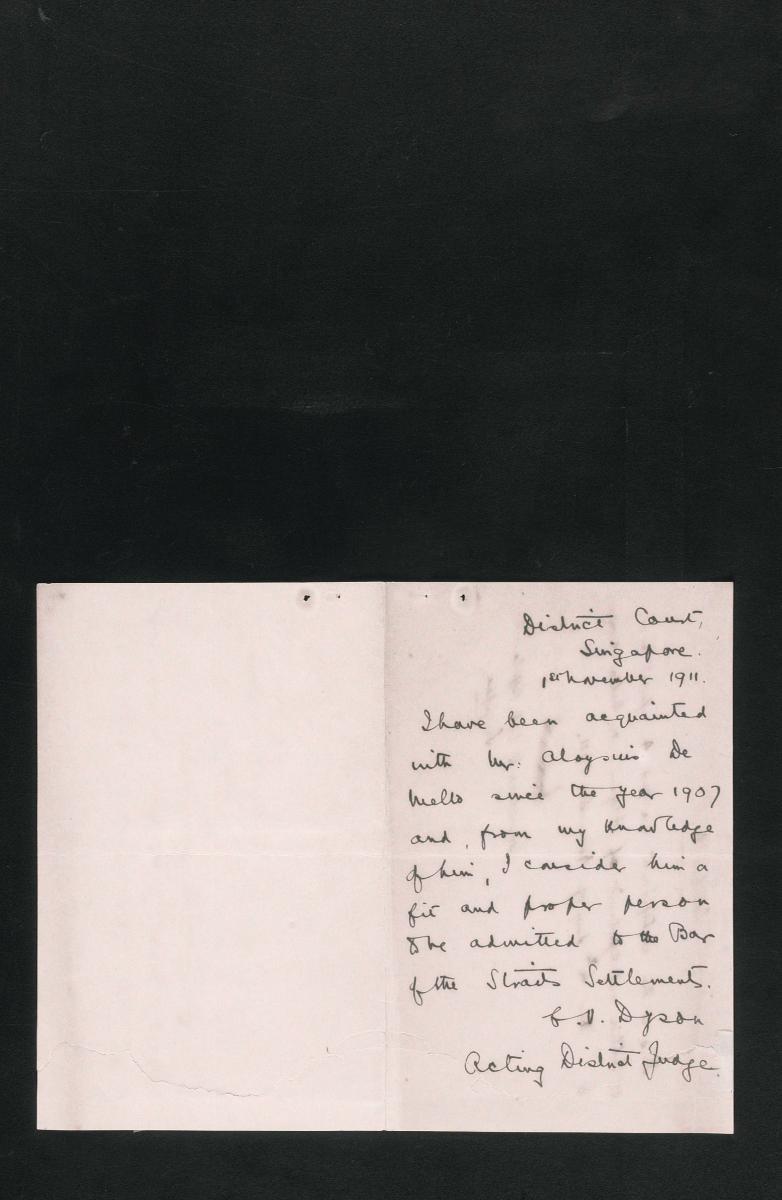 District Court,
Singapore.
1st November 1911.
I have been acquainted
with Mr. Aloysius De
Mello since the year 1907
and, from my knowledge
of him, I consider him a
fit and proper person
to be admitted to the Bar
of the Straits Settlements.
C.V. Dyson
Acting District Judge.